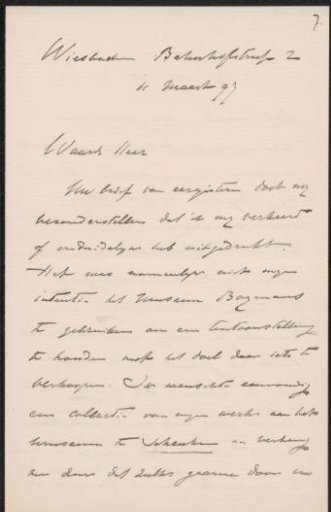 7.
Wiesbaden Bahnhofstrasse 2
11 Maart 97
Waarde Heer
Uw brief van eergisteren doet mij
veronderstellen dat ik mij verkeerd
of onduidelijk heb uitgedrukt.
Het was namelijk niet mijn
intentie het Museum Boymans
te gebruiken om een tentoonstelling
te houden met het doel daar iets te
verkoopen. Ik wenschte eenvoudig
een collectie van mijn werk aan het
museum te schenken en
dat zulks gaarne door